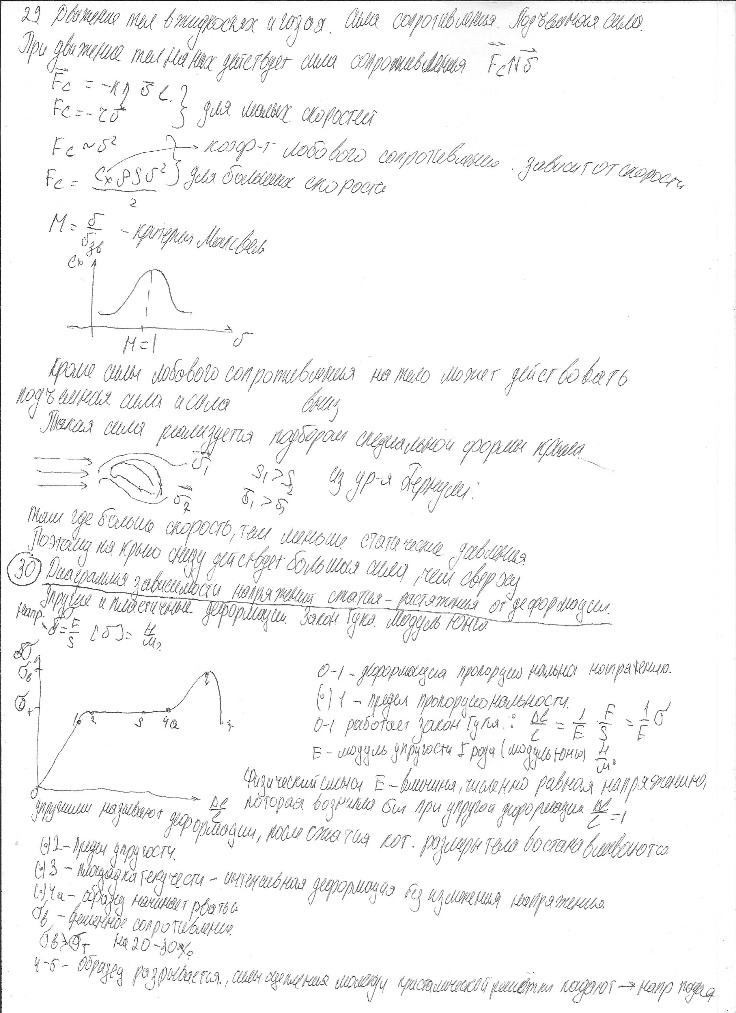 29 Движение тел в жидкостях и газах. Сила сопротивления. Подъемная сила.
При движение тел на них действует сила сопротивления F⃗c⇅v⃗
F⃗c = -kηv⃗L
Fc = -rv⃗ } для малых скоростей
Fc ~ v²
коэф-т лобового сопротивления. зависит от скорости
Fc = CxρSv²/2 } для больших скорости
M = v/vзв - критерий Максвелл
Cx
v
M=1
Кроме силы лобового сопротивления на тело может действовать
подъемная сила и сила вниз
Такая сила реализуется подбором специальной формы крыла
v⃗1
S1>S2
из ур-я Бернулли:
v⃗2
v⃗1>v⃗2
там где больше скорость, там меньше статические давления
Поэтому на крыло снизу действует большая сила, чем сверху
30 Диаграмма зависимости напряжения сжатия-растяжения от деформации.
Упругие и пластичные деформации Закон Гука. Модуль Юнга
напр- σ = F/S [σ] = Н/м²
σ
σв
σт
0
1
2
3
4а
Δl/l
0-1 - деформация пропорциональна напряжению.
(•) 1 - предел пропорциональности.
0-1 работает закон Гука: Δl/l = 1/E F/S = 1/E σ
E - модуль упругости I рода (модуль Юнга) Н/м²
Физический смысл E - величина, численно равная напряжению,
которая возникла бы при упругой деформации Δl/l = 1
упругими называют деформации, после снятия кот. размеры тела востанавливаются
(•) 2 - Предел упругости.
(•) 3 - площадка текучести - интенсивная деформация без изменения напряжения
(•) 4а - образец начинает рваться
σв - временное сопротивление
σв>σт на 20-30%
4-5 - Образец разрывается, силы сцепления между кристаллической решетки падают → напр падает